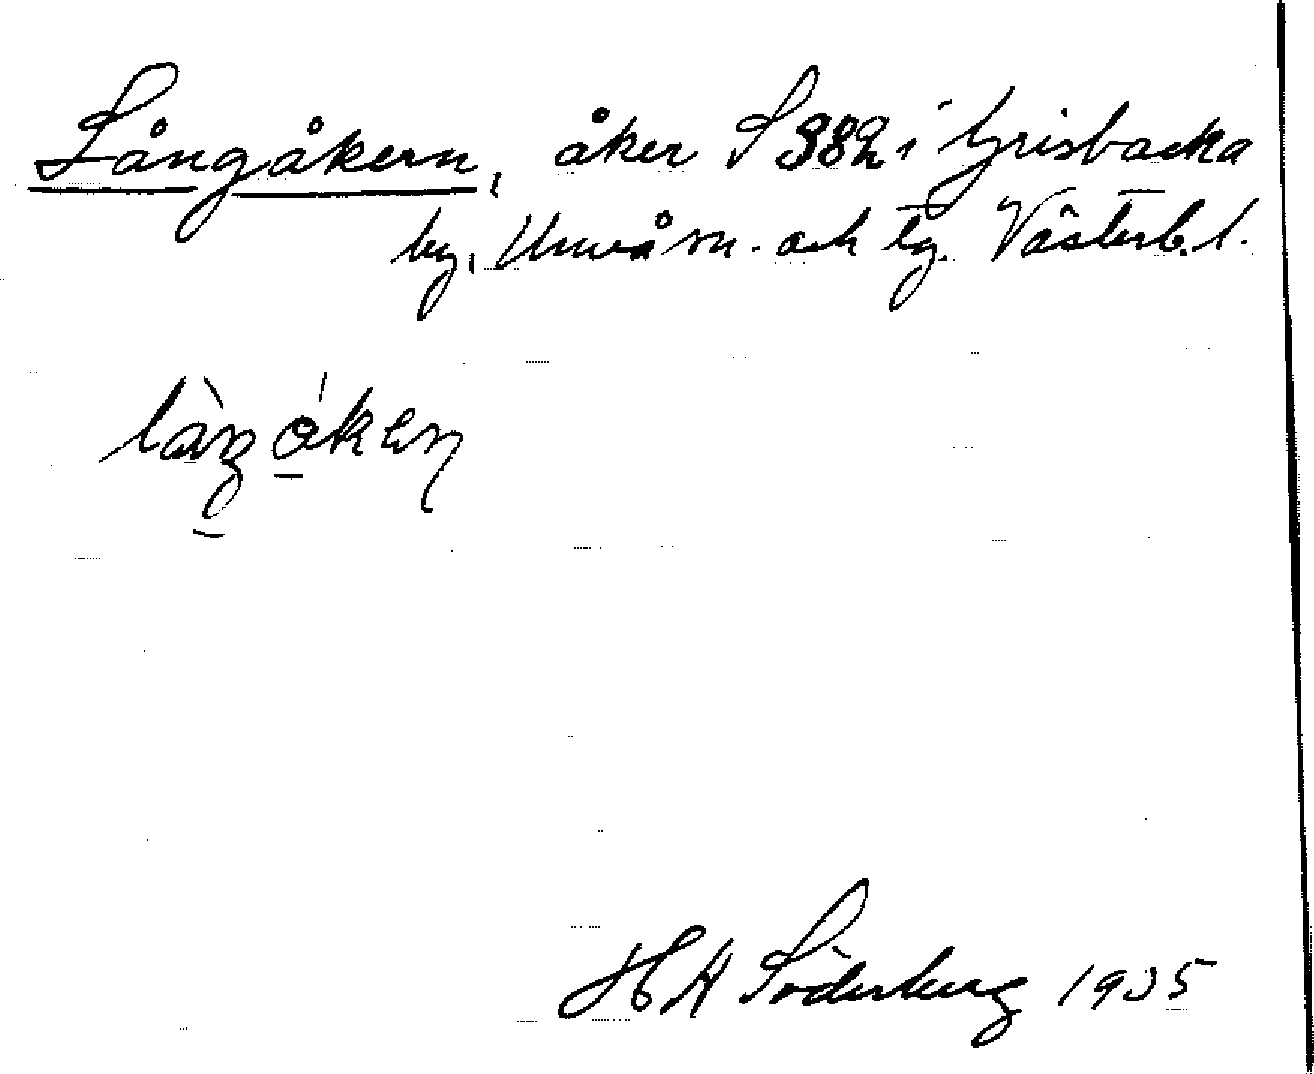 Långåkern, åker S 382 i Grisbacka
by, Umeå sn. och tg. Västerb. l.
làŋgåken
H A Söderberg 1935